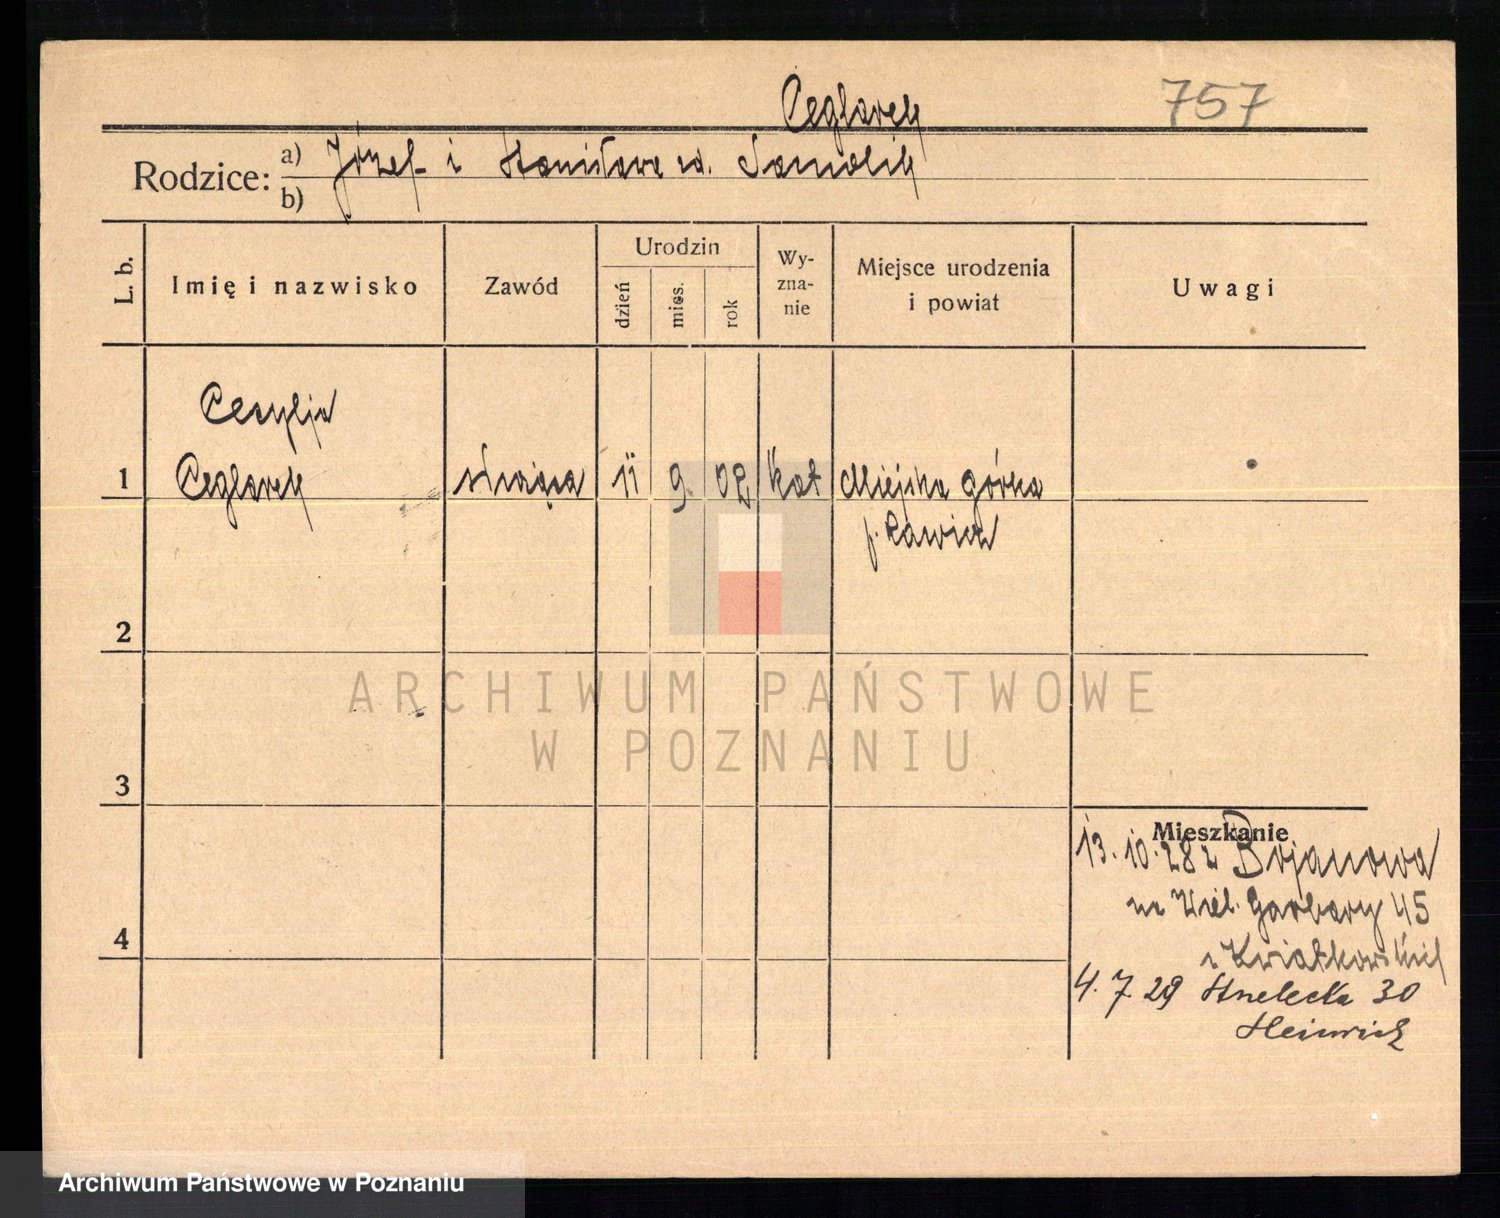 Ceglarek 757
Rodzice: a) Józef i Stanisława zd. Samolik
b)
L. b. Imię i nazwisko Zawód Urodzin dzień mies. rok Wy-zna-nie Miejsce urodzenia i powiat Uwagi
Cecylja
1 Ceglarek służąca 11 9. 02 kat Miejska górka
p. Rawicz
2
ARCHIWUM PAŃSTWOWE
W POZNANIU
3
Mieszkanie
13. 10. 28 z Bojanowa
na Wiel. Garbary 45
4
u Kwiatkowskich
4. 7. 29 Strzelecka 30
Heinrich
Archiwum Państwowe w Poznaniu